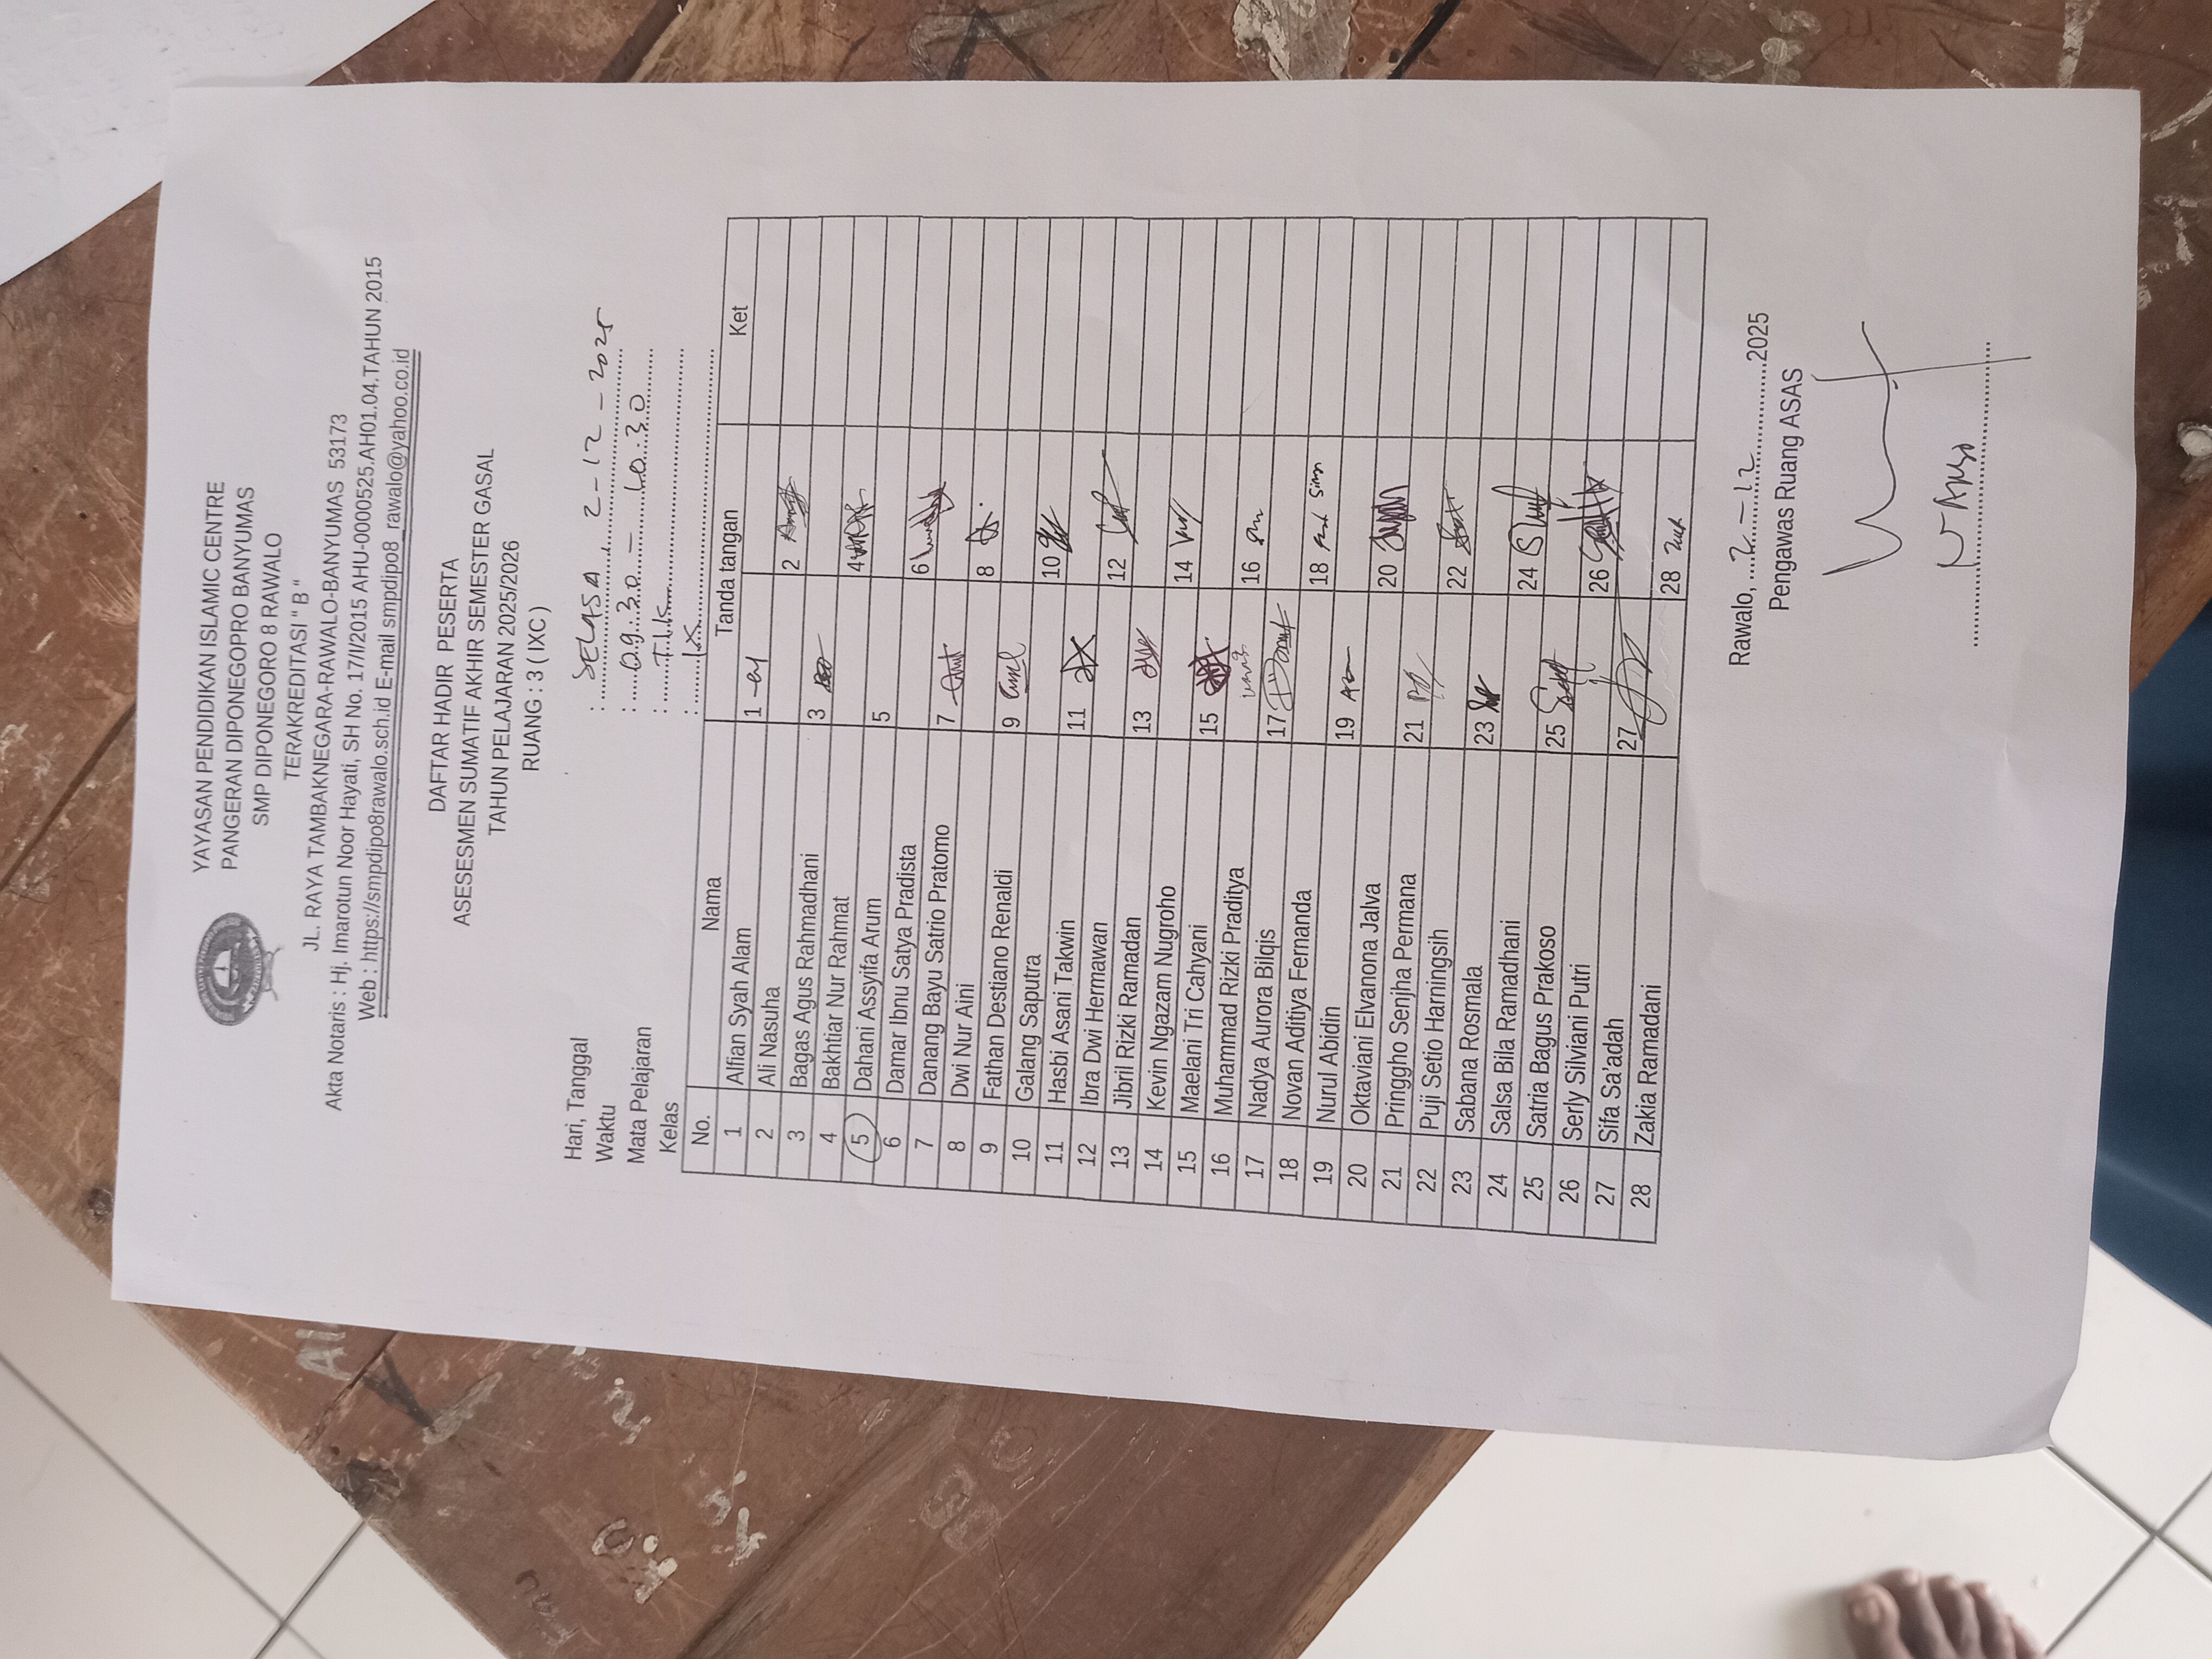 YAYASAN PENDIDIKAN ISLAMIC CENTRE
PANGERAN DIPONEGOPRO BANYUMAS
SMP DIPONEGORO 8 RAWALO
TERAKREDITASI " B "
JL. RAYA TAMBAKNEGARA-RAWALO-BANYUMAS 53173
Akta Notaris : Hj. Imarotun Noor Hayati, SH No. 17/II/2015 AHU-0000525.AH01.04.TAHUN 2015
Web : https://smpdipo8rawalo.sch.id E-mail smpdipo8_rawalo@yahoo.co.id
DAFTAR HADIR PESERTA
ASESESMEN SUMATIF AKHIR SEMESTER GASAL
TAHUN PELAJARAN 2025/2026
RUANG : 3 ( IXC )
Hari, Tanggal : SELASA 2-12-2025
Waktu : 09.30 - 10.30
Mata Pelajaran : TIK
Kelas : IX
No. Nama Tanda tangan Ket
1 Alfian Syah Alam 1
2 Ali Nasuha 2
3 Bagas Agus Rahmadhani 3
4 Bakhtiar Nur Rahmat 4
5 Dahani Assyifa Arum 5
6 Damar Ibnu Satya Pradista 6
7 Danang Bayu Satrio Pratomo 7
8 Dwi Nur Aini 8
9 Fathan Destiano Renaldi 9
10 Galang Saputra 10
11 Hasbi Asani Takwin 11
12 Ibra Dwi Hermawan 12
13 Jibril Rizki Ramadan 13
14 Kevin Ngazam Nugroho 14
15 Maelani Tri Cahyani 15
16 Muhammad Rizki Praditya 16
17 Nadya Aurora Bilqis 17
18 Novan Aditiya Fernanda 18
19 Nurul Abidin 19
20 Oktaviani Elvanona Jalva 20
21 Pringgho Senjha Permana 21
22 Puji Setio Harningsih 22
23 Sabana Rosmala 23
24 Salsa Bila Ramadhani 24
25 Satria Bagus Prakoso 25
26 Serly Silviani Putri 26
27 Sifa Sa'adah 27
28 Zakia Ramadani 28
Rawalo, 2-12 2025
Pengawas Ruang ASAS